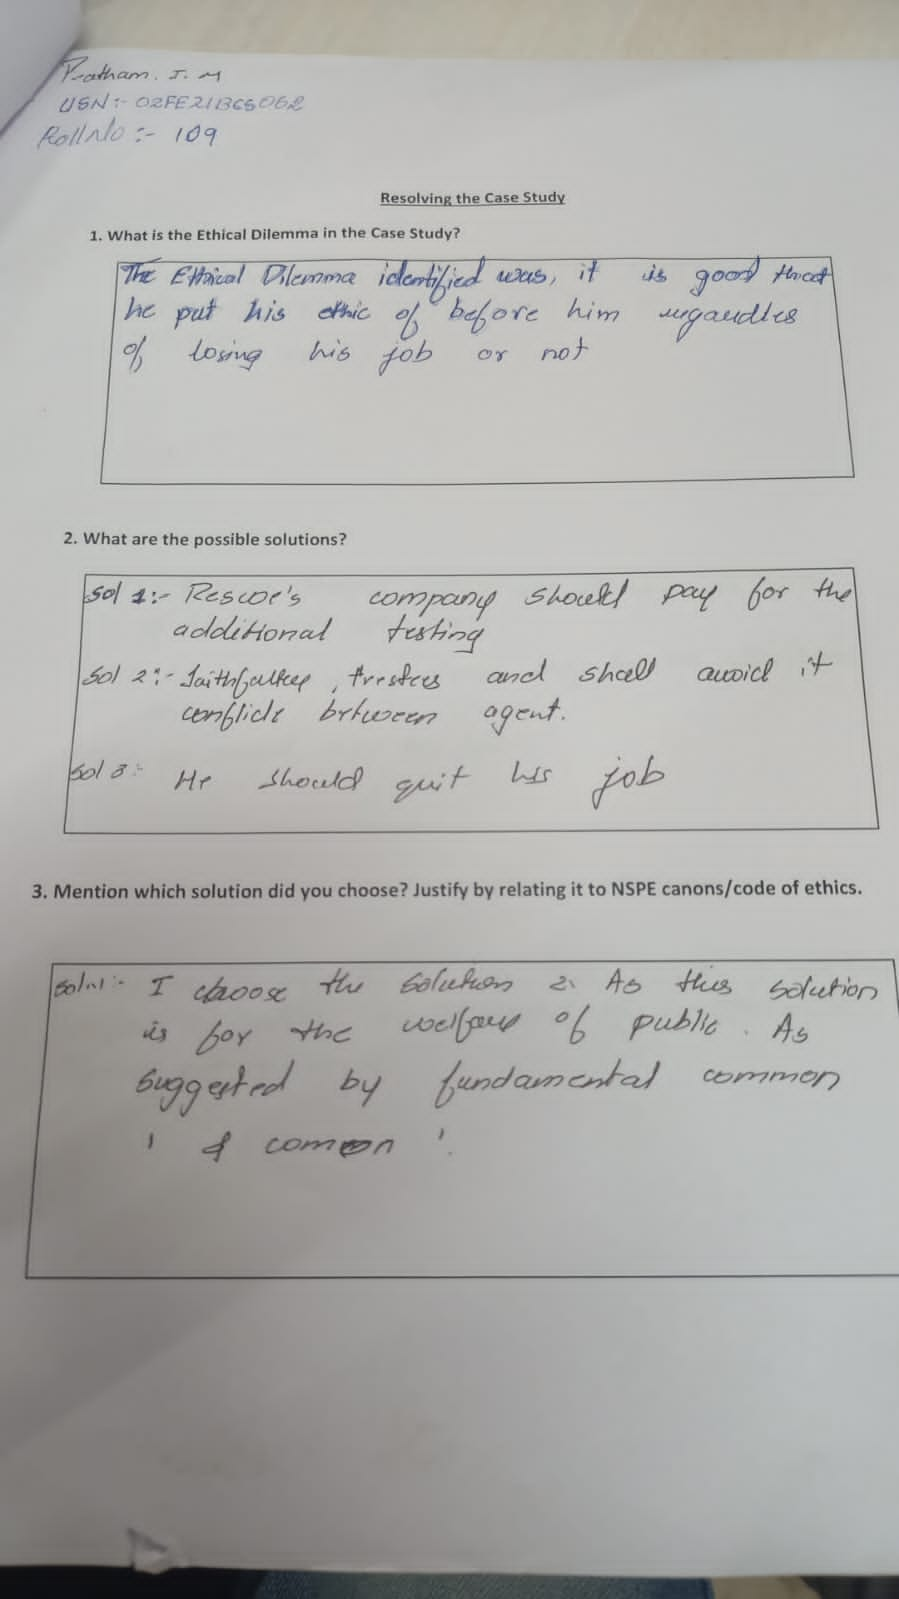 Pratham. J. M
USN:- 02FE21BCS062
Roll No :- 109
Resolving the Case Study
1. What is the Ethical Dilemma in the Case Study?
The Ethical Dilemma identified was, it is good that
he put his ethic of before him
of losing his job or not
2. What are the possible solutions?
Sol 1:- company should pay for the
additional testing
Sol 2:- and shall avoid it
conflicts between agent.
Sol 3:- He should quit his job
3. Mention which solution did you choose? Justify by relating it to NSPE canons/code of ethics.
I choose the solution 2. As this solution
is for the welfare of public. As
suggested by fundamental common
1 & common 1.